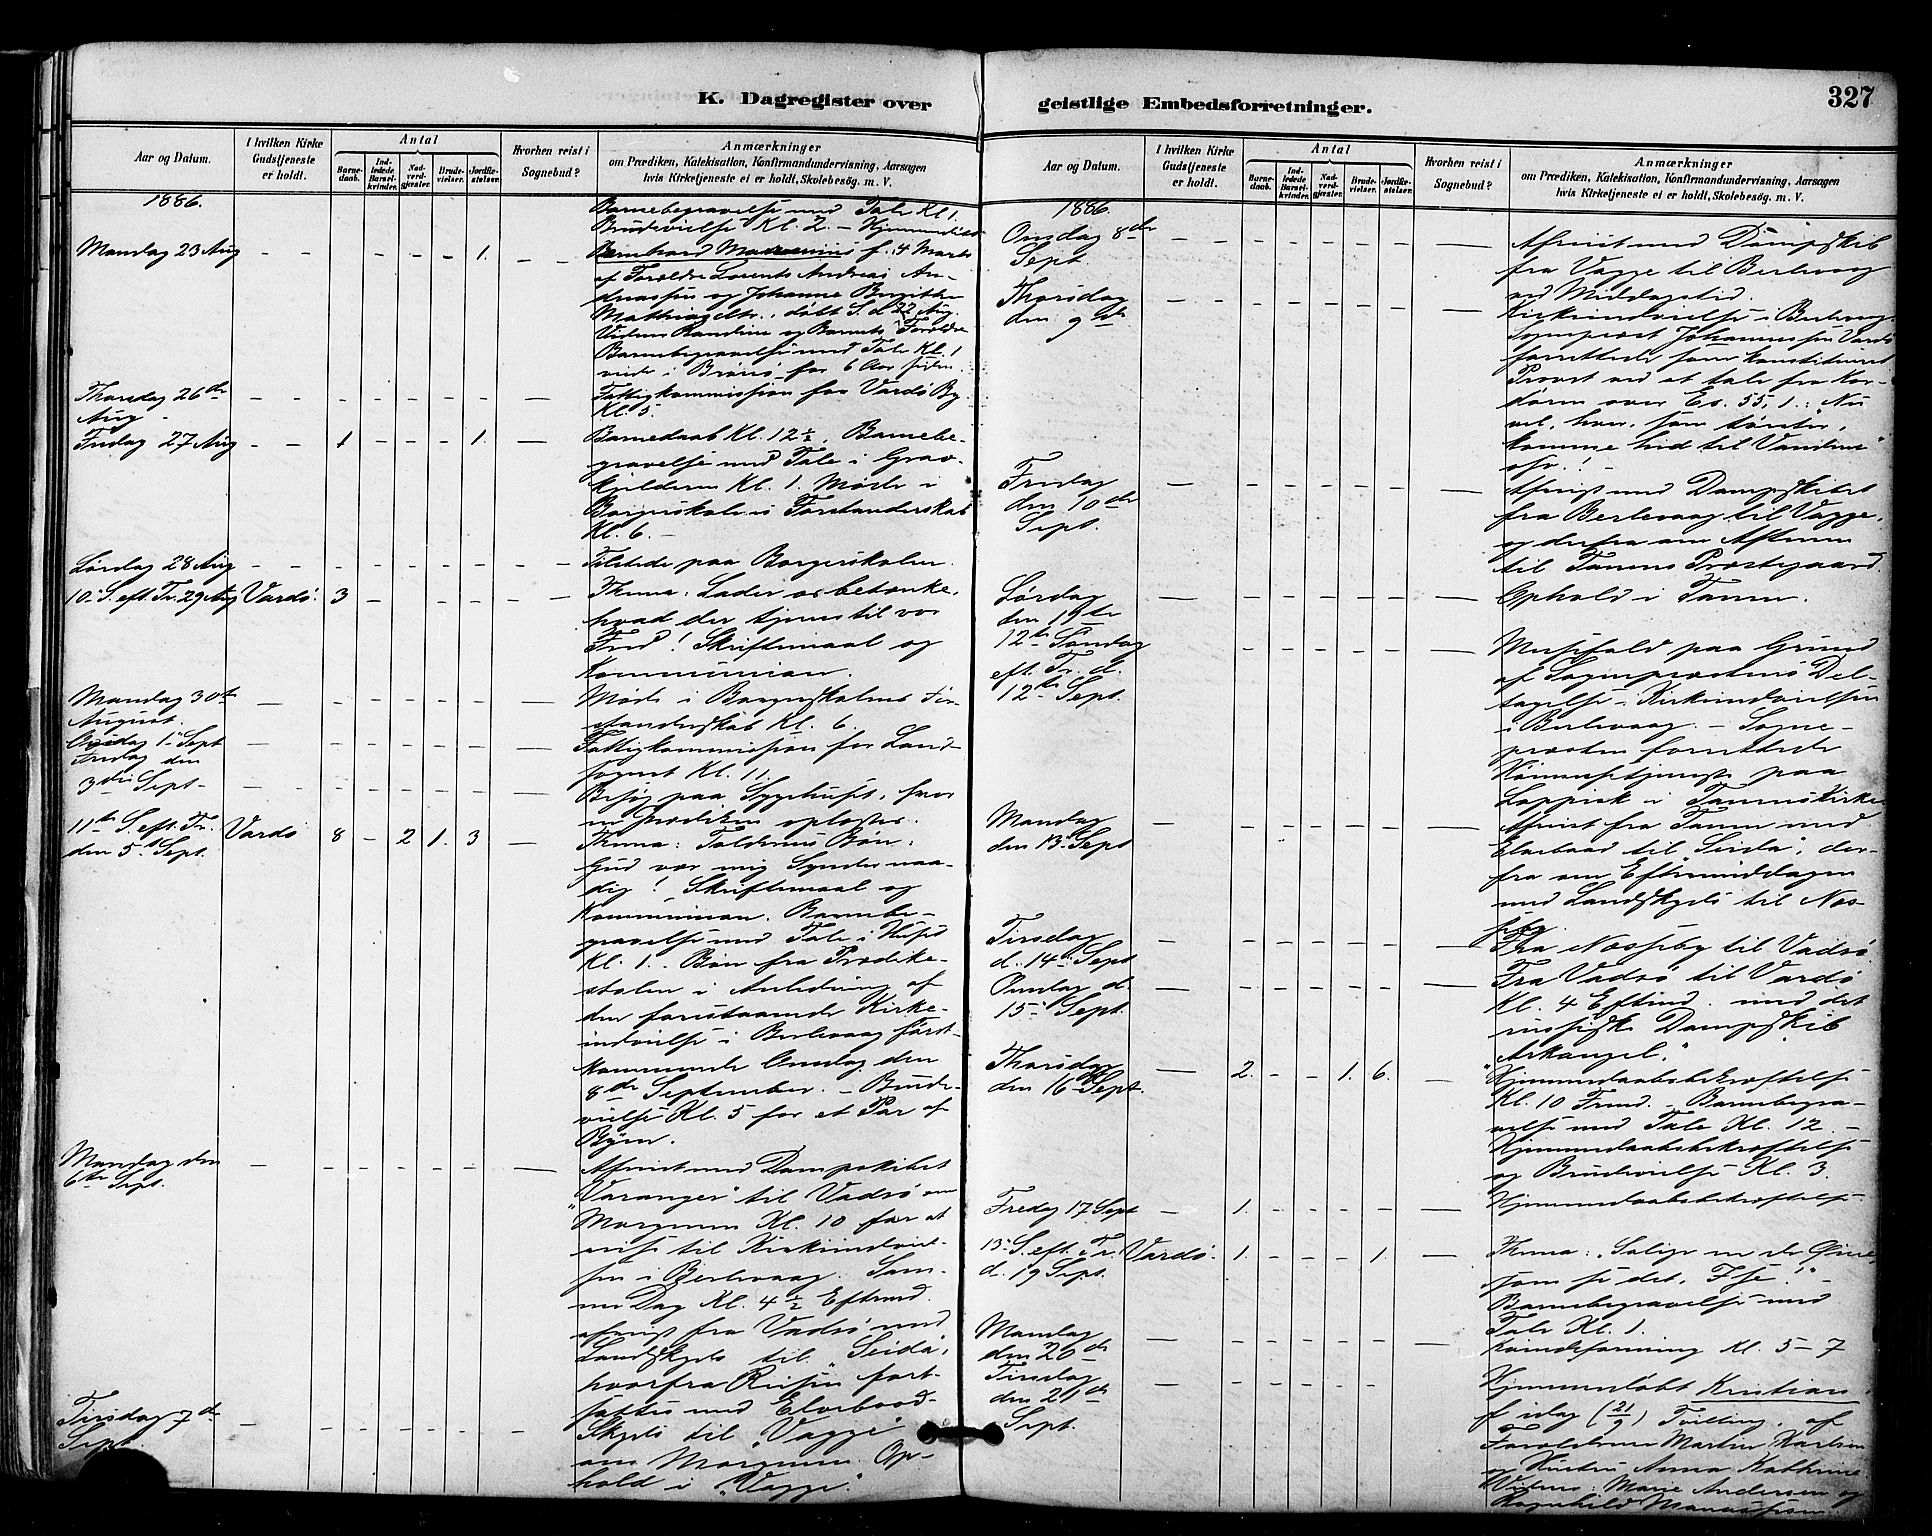 K. Dagregister over
geistlige Embedsforretninger.
327
Aar og Datum.
I hvilken Kirke
Gudstjeneste
er holdt.
Antal
Barne-
daab.
Ind-
ledede
Barsel-
kvinder.
Nad-
verd-
gjester.
Brude-
vielser.
Jordfæ-
stelser.
Hvorhen reist i
Sognebud?
Anmærkninger
om Prædiken, Katekisation, Konfirmandundervisning, Aarsagen
hvis Kirketjeneste ei er holdt, Skolebesög. m. V.
1886.
Barnebegravelse med Tale Kl. 1.
Brudevielse Kl. 2. – Hjemmedøbt
Mandag 23 Aug – – – – – – 1. – –
Bernhard f. 4 Marts
af Forældre Lorents Andreas An-
dreassen og Johanne Birgitte
døbt S. d. 22 Aug.
Barnebegravelse med Tale Kl. 1
Thorsdag 26de – – – – – – – –
Fattigkommission for Vardø By
Aug –
Kl. 5.
Fredag 27 Aug – – 1 – – – 1. –
Barnedaab Kl. 12½. Barnebe-
gravelse med Tale i Grav-
kjelderen Kl. 1. Møde i
Borgerskolens Forstanderskab
Kl. 6. –
Lørdag 28 Aug – – – – – – – – –
Tilstede paa Borgerskolen.
10de S. eft. Tr. 29 Aug Vardø. 3 – – – – – –
Thema: Lader os betænke,
hvad der tjener til vor
Fred! Skriftemaal og
Kommunion.
Mandag 30te – – – – – – –
August.
Møde i Borgerskolens For-
standerskab Kl. 6.
Onsdag 1ste Sept – – – – – – –
Fattigkommission for Land-
sognet Kl. 11.
Fredag den
3die Sept – – – – – – – –
Besøg paa Sygehuset, hvor
en prædiken oplæstes.
11te S. eft. Tr.
den 5te Sept. Vardø 8 – 2 1. 3 –
Thema: Tolderens Bøn:
Gud vær mig Synder naa-
dig! Skriftemaal og
Kommunion. Barnebe-
gravelse med Tale i Huset
Kl. 1. – Bøn fra Prædike-
stolen i Anledning af
den forestaaende Kirke-
indvielse i Berlevaag først-
kommende Onsdag den
8de September. – Brude-
vielse Kl. 5 for et Par af
Byen.
Mandag den
6te Sept. – – – – – – –
Afreist med Dampskibet
"Varanger" til Vadsø om
Morgenen Kl. 10 for at
reise til Kirkeindviel-
sen i Berlevaag. Sam-
me Dag Kl. 4½ Eftmd.
afreist fra Vadsø med
Landskyds til "Seida",
hvorfra Reisen fort-
sattes med Elvebaad-
Tirsdag 7de
Sept. – – – – – – –
Skyds til "Vagge"
om Morgenen. Op-
hold i "Vagge".
Aar og Datum.
I hvilken Kirke
Gudstjeneste
er holdt.
Antal
Barne-
daab.
Ind-
ledede
Barsel-
kvinder.
Nad-
verd-
gjester.
Brude-
vielser.
Jordfæ-
stelser.
Hvorhen reist i
Sognebud?
Anmærkninger
om Prædiken, Katekisation, Konfirmandundervisning, Aarsagen
hvis Kirketjeneste ei er holdt, Skolebesög. m. V.
1886.
Onsdag 8de
Sept – – – – – – –
Afreist med Dampskib
fra Vagge til Berlevaag
ved Middagstid.
Thorsdag
den 9de – – – – – – –
Kirkeindvielse i Berlevaag.
Sognepræst Johannessen Vardø
forrettede som konstitueret
Provst ved at tale fra Kor-
døren over Es. 55, 1: "Nu
vel, hver, som tørster,
komme hid til Vandene"
osv.! –
Fredag
den 10de
Sept. – – – – – – –
Afreist med Dampskibet
fra Berlevaag til Vagge,
og derfra om Aftenen
til Tanens Præstegaard.
Lørdag
den 11te – – – – – – –
Ophold i Tanen.
12te Søndag
eft. Tr. d.
12te Sept. – – – – – –
Messefald paa Grund
af Sognepræstens Del-
tagelse i Kirkeindvielsen
i Berlevaag. – Sogne-
præsten forrettede
paa
Lappisk i Tanens Kirke.
Mandag
den 13de Sept – – – – – – –
Afreist fra Tanen med
Elvebaad til "Seida", der-
fra om Eftermiddagen
med Landskyds til Næs-
seby.
Tirsdag
d. 14de Sept – – – – – – –
Fra Næsseby til Vadsø
Onsdag d.
15de Sept. – – – – – – –
Fra Vadsø til Vardø
Kl. 4 Eftmd. med det
russiske Dampskib
"Arkangel."
Thorsdag
den 16de Sept. – 2. – – 1. 6. –
Hjemmedaabsbekræftelse
Kl. 10 Frmd. – Barnebegra-
velse med Tale Kl. 12. –
Hjemmedaabsbekræftelse
og Brudevielse Kl. 3.
Fredag 17 Sept – 1. – – – – –
Hjemmedaabsbekræftelse
13de S. eft. Tr. Vardø. 1. – – – 1. –
d. 19 Sept.
Thema: "Salige er de Øine,
som se det, I se!" –
Barnebegravelse med
Tale Kl. 1.
Mandag
den 20de – – – – – – –
Kl. 5–7
Tirsdag
den 21de
Sept. – – – – – – –
Hjemmedøbt Kristian,
f. idag (21/9) Tvilling, af
Forældrene Martin Karlsen
og Hustru Anna Kathrine
Vidner: Marie Andersen og
Ragnhild